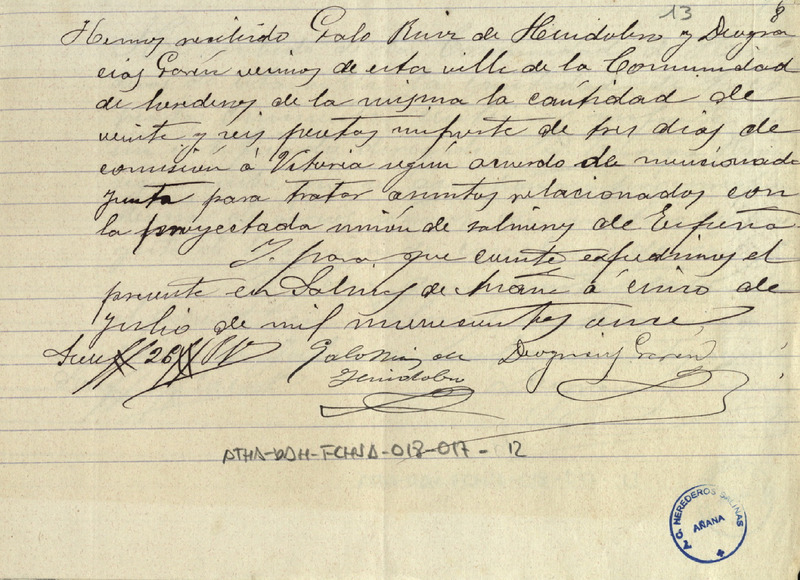 13 8
Hemos recibido Galo Ruiz de Hinidobro y Deogra
cias Garin vecinos de esta villa de la Comunidad
de herederos de la misma la cantidad de
veinte y seis pesetas importe de tres dias de
comisión á Vitoria según acuerdo de mencionada
junta para tratar asuntos relacionados con
la proyectada unión de salineros de España
Y para que conste expedimos el
presente en Salinas de Añana á cinco de
julio de mil novecientos once,
Son // 26 //
Galo Ruiz de Deogracias Garin
Hinidobro
ATHA-DAH-FCHSA-018-017-12
A. C. HEREDEROS SALINAS
AÑANA